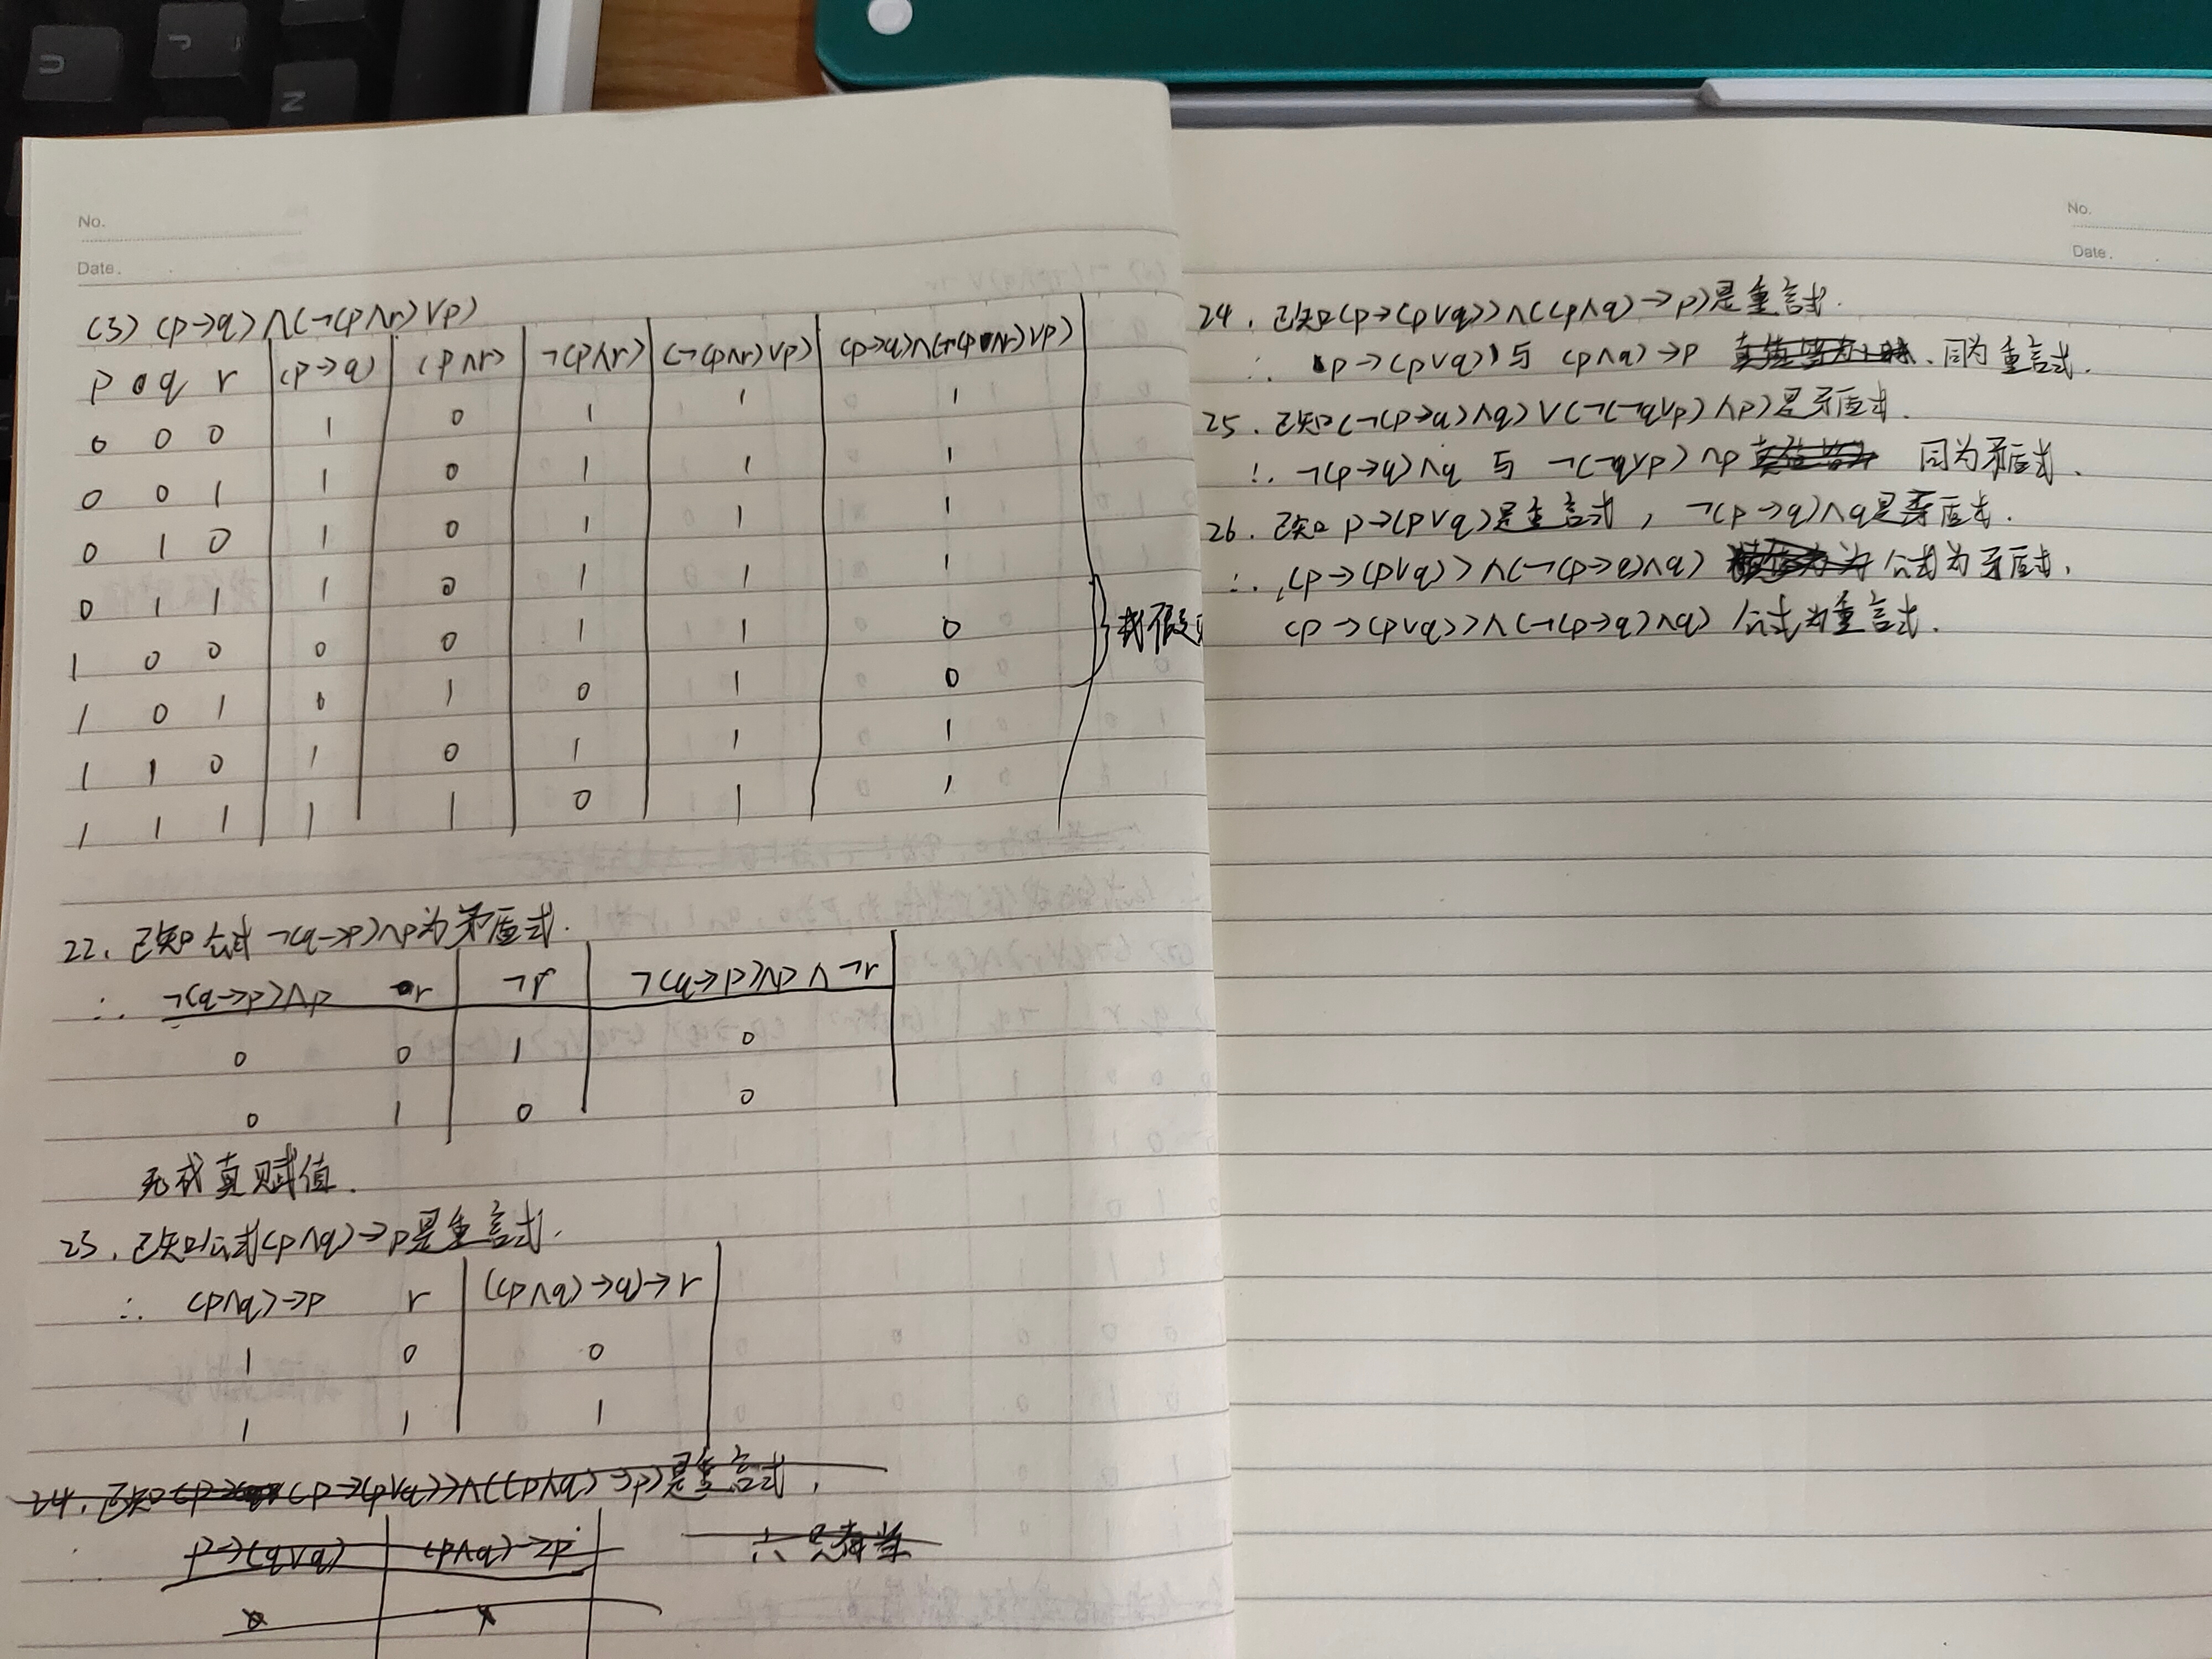 U
J
N
No.
Date.
(3) (p→q)∧(¬(p∧r)∨p)
p q r (p→q) (p∧r) ¬(p∧r) (¬(p∧r)∨p) (p→q)∧(¬(p∧r)∨p)
0 0 0 1 0 1 1 1
0 0 1 1 0 1 1 1
0 1 0 1 0 1 1 1
0 1 1 1 0 1 1 1
1 0 0 0 0 1 1 0
1 0 1 0 1 0 1 0
1 1 0 1 0 1 1 1
1 1 1 1 1 0 1 1
成假
22. 已知公式¬(q→p)∧p为矛盾式.
∴ ¬(q→p)∧p r ¬r ¬(q→p)∧p∧¬r
0 0 1 0
0 1 0 0
无成真赋值.
23. 已知公式(p∧q)→p是重言式.
∴ (p∧q)→p r ((p∧q)→q)→r
1 0 0
1 1 1
24. 已知 (p→(p∨q))∧((p∧q)→p)是重言式,
p→(q∨q) (p∧q)→p ∴ 只有当
No.
Date.
24. 已知(p→(p∨q))∧((p∧q)→p)是重言式.
∴ p→(p∨q))与 (p∧q)→p 同为重言式.
25. 已知(¬(p→q)∧q)∨(¬(¬q∨p)∧p)是矛盾式.
∴ ¬(p→q)∧q 与 ¬(¬q∨p)∧p 同为矛盾式.
26. 已知 p→(p∨q)是重言式, ¬(p→q)∧q是矛盾式.
∴ (p→(p∨q))∧(¬(p→q)∧q) 公式为矛盾式,
(p→(p∨q))∧(¬(p→q)∧q) 公式为重言式.